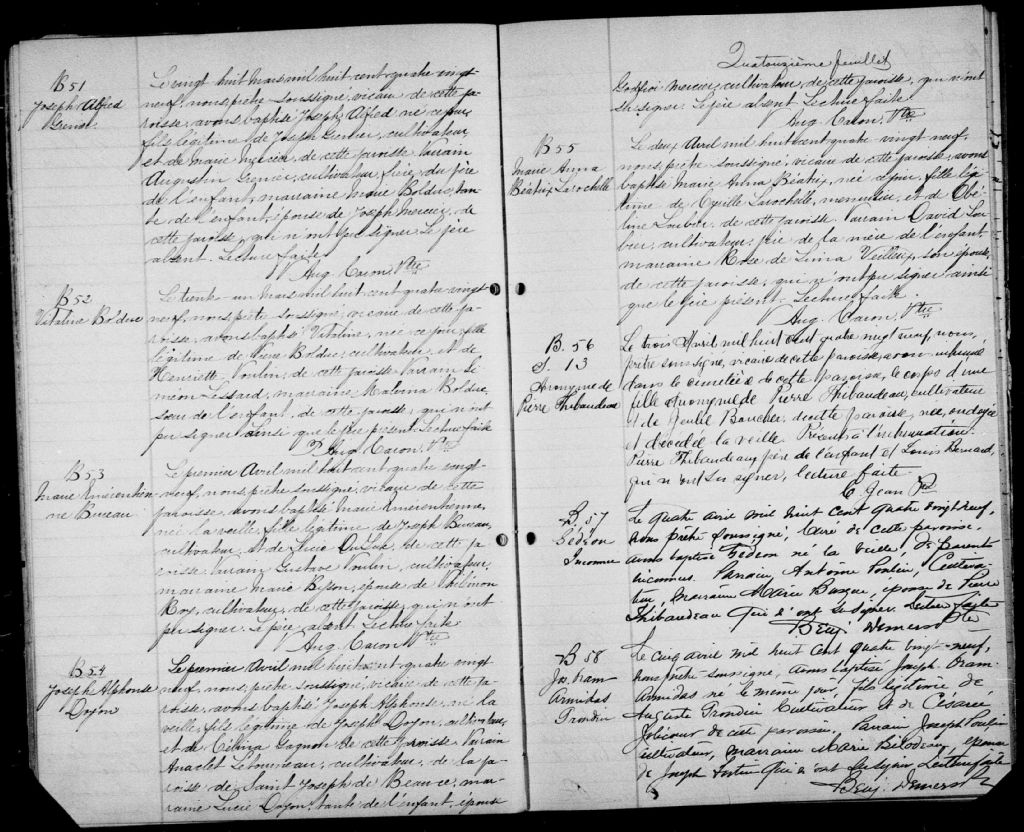 B 51
Joseph Alfred
Grenier
Le vingt huit Mars mil huit cent quatre vingt
neuf, nous prêtre soussigné, vicaire de cette pa-
roisse, avons baptisé Joseph Alfred né ce jour,
fils légitime de Joseph Grenier, cultivateur,
et de Marie Mercier, de cette paroisse Parrain
Augustin Grenier, cultivateur, frère du père
de l'enfant, marraine Marie Bolduc, tan-
te de l'enfant, épouse de Joseph Mercier, de
cette paroisse, qui n'ont pu signer. Le père
absent. Lecture faite
Aug. Caron, Ptre
B 52
Vitaline Bolduc
Le trente-un Mars mil huit cent quatre vingt
neuf, nous prêtre soussigné, vicaire de cette pa-
roisse, avons baptisé Vitaline, née ce jour, fille
légitime de Pierre Bolduc, cultivateur, et de
Henriette Poulin, de cette paroisse Parrain Si-
méon Lessard, marraine, Malvina Bolduc,
soeur de l'enfant, de cette paroisse, qui n'ont
pu signer ainsi que le père présent. Lecture faite
Aug. Caron, Ptre
B 53
Marie
ne Bureau
Le premier Avril mil huit cent quatre vingt
neuf, nous prêtre soussigné, vicaire de cette
paroisse, avons baptisé Marie
née la veille, fille légitime de Joseph Bureau,
cultivateur, et de Lucie de cette pa-
roisse Parrain Gustave Poulin, cultivateur,
marraine Marie Bisson, épouse de Philémon
Roy, cultivateur, de cette paroisse, qui n'ont
pu signer. Le père absent Lecture faite
Aug. Caron, Ptre
B 54
Joseph Alphonse
Doyon
Le premier Avril mil huit cent quatre vingt
neuf, nous prêtre soussigné, vicaire de cette pa-
roisse, avons baptisé Joseph Alphonse, né la
veille, fils légitime de Joseph Doyon, cultivateur,
et de Célina Gagnon de cette paroisse Parrain
Anaclet Létourneau, cultivateur, de la pa-
roisse de Saint Joseph de Beauce, mar-
raine Lucie Doyon, tante de l'enfant, épouse
Quatorzième feuillet
Godfroi Mercier, cultivateur, de cette paroisse, qui n'ont
su signer. Le père absent Lecture faite
Aug. Caron, Ptre
B 55
Marie Anna
Béatrix Larochelle
Le deux Avril mil huit cent quatre vingt neuf,
nous, prêtre soussigné, vicaire de cette paroisse, avons
baptisé Marie Anna Béatrix, née ce jour, fille légi-
time de Larochelle, menuisier, et de Obé-
line Loubier, de cette paroisse. Parrain David Lou-
bier, cultivateur, père de la mère de l'enfant,
marraine Rose de Lima Veilleux, son épouse,
de cette paroisse, qui n'ont pu signer ainsi
que le père présent. Lecture faite.
Aug. Caron, Ptre
B. 56
S. 13
Anonyme de
Pierre Thibaudeau
Le trois Avril mil huit cent quatre vingt neuf, nous,
prêtre soussigné, vicaire de cette paroisse, avons inhumé
dans le cimetière de cette paroisse, le corps d'une
fille Anonyme de Pierre Thibaudeau, cultivateur
et de Boucher, de cette paroisse, née, ondoyée
et décédée la veille. Présents à l'inhumation:
Pierre Thibaudeau, père de l'enfant et Louis Bernard,
qui n'ont su signer, lecture faite
C. Jean Ptre
B. 57
Gédéon
Inconnu
Le quatre avril mil huit cent quatre vingt neuf,
nous prêtre soussigné, Curé de cette paroisse,
avons baptisé Gédéon né la veille, de parents
inconnus. Parrain, Antoine Poulin, Cultiva-
teur, marraine Marie Busque, épouse de Pierre
Thibaudeau qui n'ont su signer. Lecture faite
Benj. Demers Ptre
B 58
Jos. Oram
Armidas
Grondin
Le cinq avril mil huit cent quatre vingt-neuf,
nous prêtre-soussigné, avons baptisé Joseph Oram
Armidas né le même jour, fils légitime de
Auguste Grondin Cultivateur et de Césarée
Jolicoeur de cette paroisse. Parrain Joseph Poulin
cultivateur, marraine Marie Bilodeau, épouse
de Joseph qui n'ont su signer Lecture faite
Benj. Demers